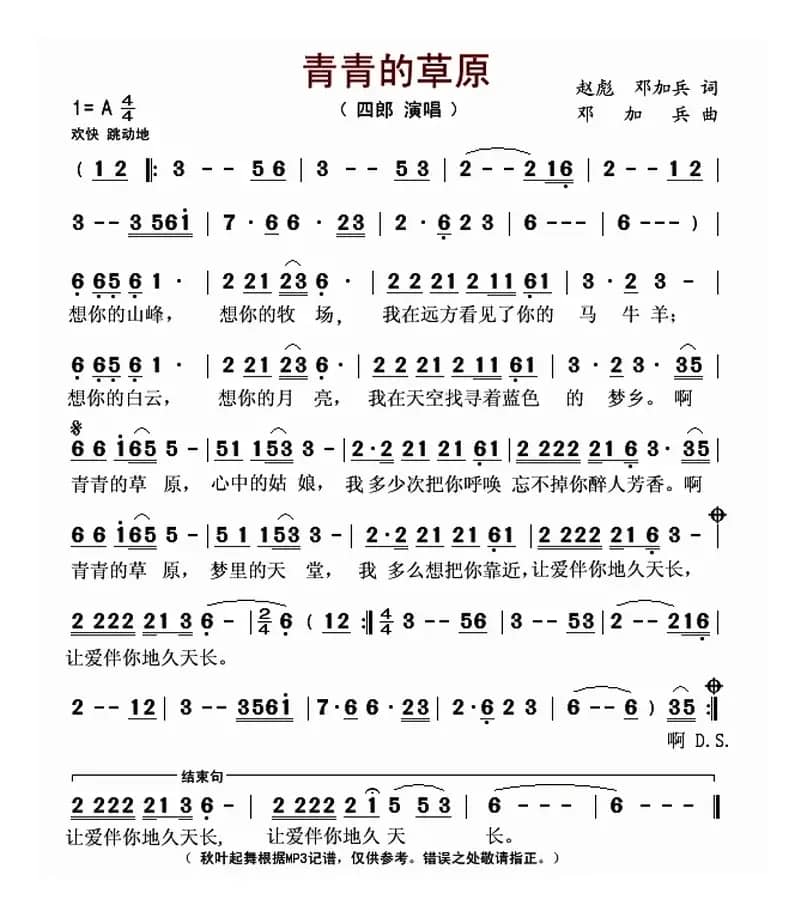 青青的草原
赵彪 邓加兵 词
1= A 4/4
（ 四郎 演唱 ）
邓 加 兵 曲
欢快 跳动地
( 1 2 ‖: 3 - - 5 6 | 3 - - 5 3 | 2 - - 2 1 6 | 2 - - 1 2 |
3 - - 3 5 6 1 | 7 · 6 6 · 2 3 | 2 · 6 2 3 | 6 - - - | 6 - - ) |
6 6 5 6 1 · | 2 2 1 2 3 6 · | 2 2 2 2 1 2 1 1 6 1 | 3 · 2 3 - |
想你的山峰， 想你的牧 场, 我在远方看见了你的 马 牛 羊；
6 6 5 6 1 · | 2 2 1 2 3 6 · | 2 2 2 2 1 2 1 1 6 1 | 3 · 2 3 · 3 5 |
想你的白云， 想你的月 亮， 我在天空找寻着蓝色 的 梦乡。啊
6 6 1 6 5 5 - | 5 1 1 5 3 3 - | 2 · 2 2 1 2 1 6 1 | 2 2 2 2 2 1 6 3 · 3 5 |
青青的草 原， 心中的姑 娘， 我 多少次把你呼唤 忘不掉你醉人芳香。啊
6 6 1 6 5 5 - | 5 1 1 5 3 3 - | 2 · 2 2 1 2 1 6 1 | 2 2 2 2 2 1 6 3 - |
青青的草 原， 梦里的天 堂， 我 多么想把你靠近，让爱伴你地久天长，
2 2 2 2 2 1 3 6 - | 2/4 6 ( 1 2 :‖ 4/4 3 - - 5 6 | 3 - - 5 3 | 2 - - 2 1 6 |
让爱伴你地久天长。
2 - - 1 2 | 3 - - 3 5 6 1 | 7 · 6 6 · 2 3 | 2 · 6 2 3 | 6 - - 6 ) 3 5 :‖
啊 D.S.
结束句
2 2 2 2 2 1 3 6 - | 2 2 2 2 2 1 5 5 3 | 6 - - - | 6 - - - ‖
让爱伴你地久天长, 让爱伴你地久 天 长。
（ 秋叶起舞根据MP3记谱，仅供参考。错误之处敬请指正。）